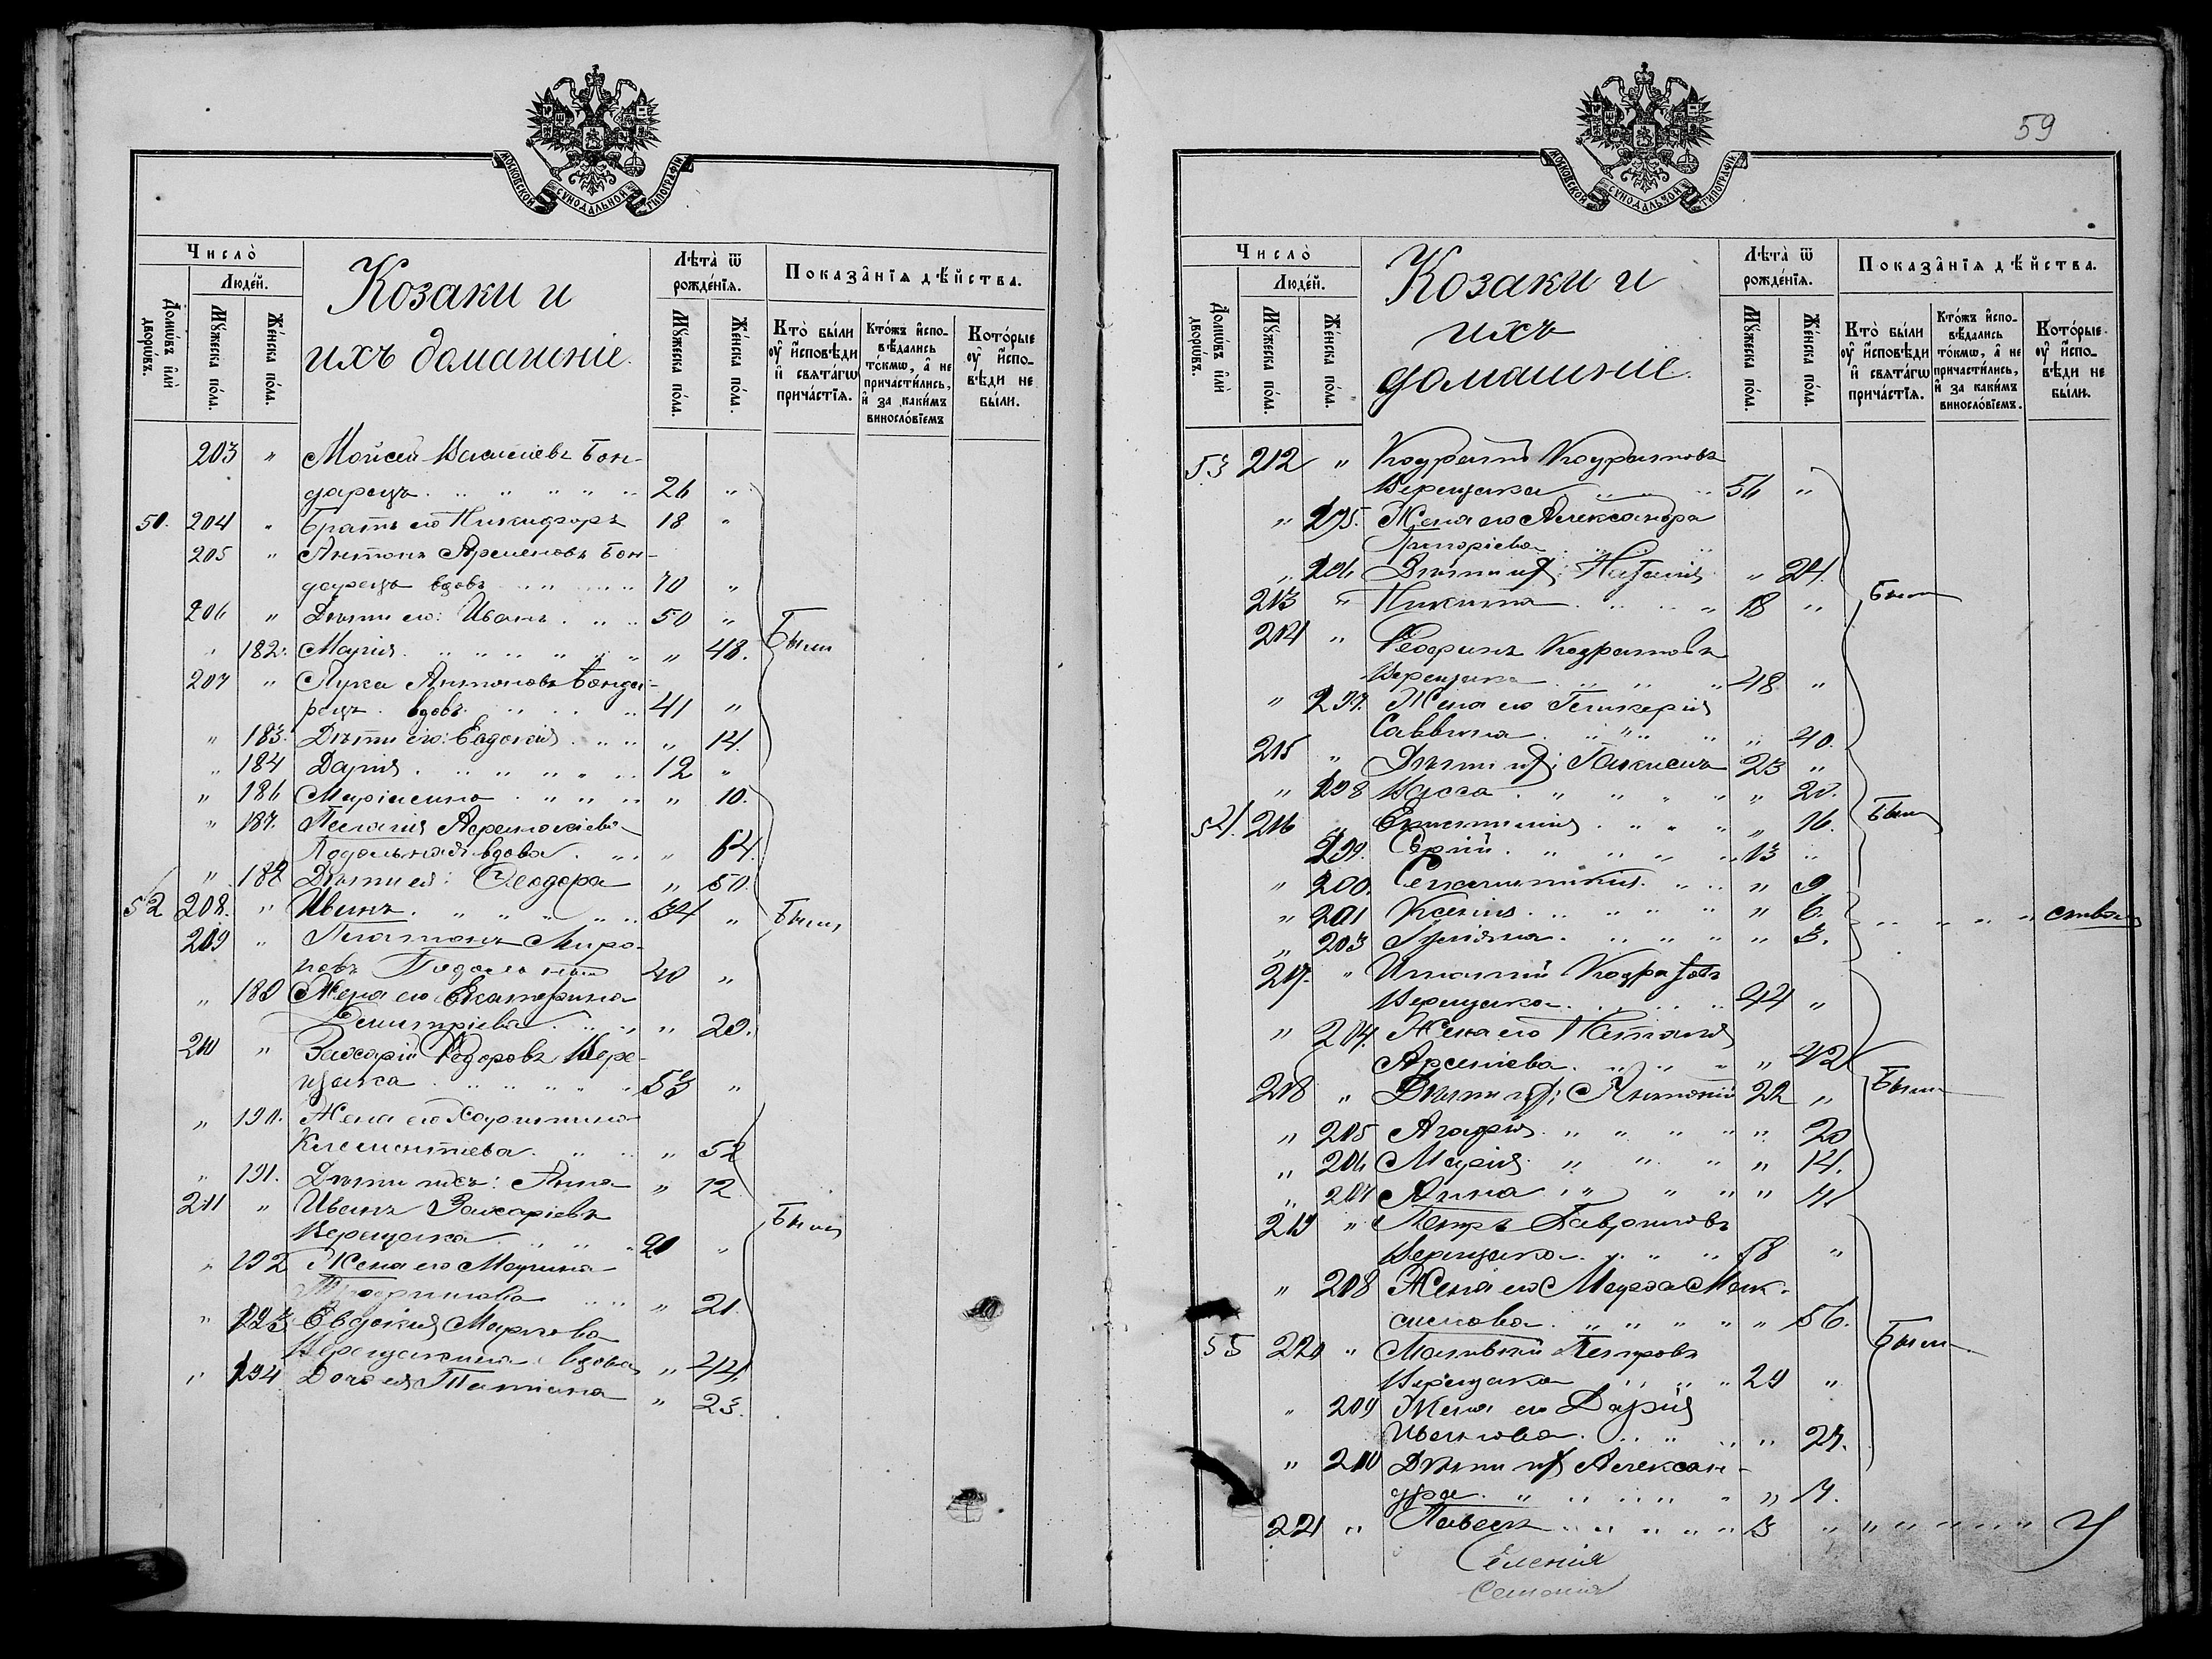 МОСКОВСКОЙ СѴНОДАЛЬНОЙ ТИПОГРАФІИ
Число̀
Людéй.
Домѡ́въ и҆лѝ дворѡ́въ.
Мꙋ́жеска по́ла.
Же́нска по́ла.
Козаки и
ихъ домашніе.
Лѣта̀ ѿ рожде́нїѧ.
Мꙋ́жеска по́ла.
Же́нска по́ла.
Показа̑нїѧ дѣ́йства.
Кто̀ бы́ли ᲂу҆ и҆сповѣ́ди и҆ свѧта́гѡ прича́стїѧ.
Кто́жъ и҆спо-вѣ́дались то́кмѡ, а҆ не причасти́лись, и҆ за каки́мъ виносло́вїемъ
Кото́рые ᲂу҆ и҆спо-вѣ́ди не бы́ли.
203 " Мойсей Василіевъ Бон-
дарецъ 26 "
50. 204 " Братъ его Никифоръ 18 "
205 " Антонъ Артемовъ Бон-
дарецъ вдовъ 70 "
206 " Дѣти его: Иванъ 50 "
" 182. Марія " 48. Были
207 " Лука Антоновъ Бонда-
рецъ вдовъ 41 "
" 183. Дѣти его: Евдокія " 14.
" 184 Дарія 12 "
" 186 Маріамна " 10.
" 187. Пелагія
Подольная вдова " 64.
" 188 Дѣти ея: Ѳеодора " 50.
52 208. " Иванъ 34 " Были
209 " Платонъ Миро-
новъ Подольный 40 "
" 189 Жена его Екатерина
Димитріева " 20.
210 " Захарій Ѳедоровъ Вере-
щака 53 "
" 190. Жена его Харитина
Климентіева " 52
" 191. Дѣти ихъ: Анна " 12
211 " Иванъ Захаріевъ
Верещака 20 " Были
" 192 Жена его Марина
" 21.
" 193 Евдокія Маркова
Верещакина вдова " 44.
" 194 Дочь ея Татіана " 23.
59
МОСКОВСКОЙ СѴНОДАЛЬНОЙ ТИПОГРАФІИ
Число̀
Людéй.
Домѡ́въ и҆лѝ дворѡ́въ.
Мꙋ́жеска по́ла.
Же́нска по́ла.
Козаки и
ихъ
домашніе.
Лѣта̀ ѿ рожде́нїѧ.
Мꙋ́жеска по́ла.
Же́нска по́ла.
Показа̑нїѧ дѣ́йства.
Кто̀ бы́ли ᲂу҆ и҆сповѣ́ди и҆ свѧта́гѡ прича́стїѧ.
Кто́жъ и҆спо-вѣ́дались то́кмѡ, а҆ не причасти́лись, и҆ за каки́мъ виносло́вїемъ.
Кото́рые ᲂу҆ и҆спо-вѣ́ди не бы́ли.
53 212 " Кодратъ Кодратовъ
Верещака 56 "
" 195. Жена его Александра
Григоріева
" 196 Дѣти их: Наталія " 24.
213 " Никита 18 " Были
214 " Ѳеофанъ Кодратовъ
Верещака 48 "
" 197. Жена его Гликерія
Саввина " 40.
215 " Дѣти их: 23 "
" 198 Васса " 20.
54. 216 " " 16. Были
199. 13 "
" 200. " 9.
" 201 Ксенія " 6.
" 203 Іуліяна " 3.
217. " Игнатій Кодратовъ
Верещака 44 "
" 204. Жена его Наталія
Арсеніева " 42
218 " Дѣти их: Антоній 22 " Были
" 205 Агафія " 20
" 206 Марія " 14.
" 207 Анна " 11
219 " Петръ Гавриловъ
Верещака 58 "
" 208 Жена его Марѳа Мак-
симова " 56.
55 220 " Матѳій Петровъ Были
Верещака 29 "
" 209 Жена его Дарія
Иванова " 27.
" 210 Дѣти их Алексан-
дра " 7.
221 " Павелъ 3 "